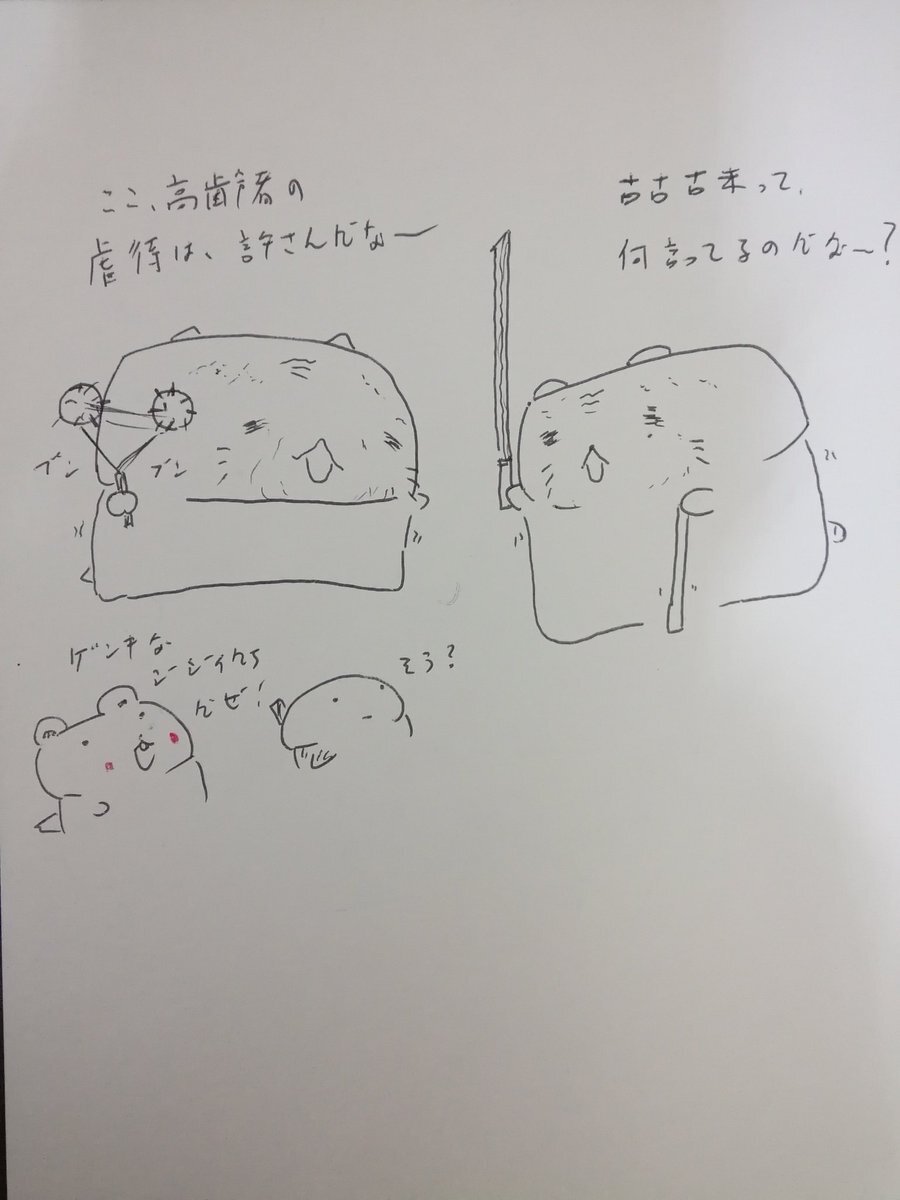 ここ、高齢者の
虐待は、許さんだなー
古古古来って、
何言ってるのだなー?
ブン
ブン
ゲンキな
ジジイたち
だぜ!
そう?